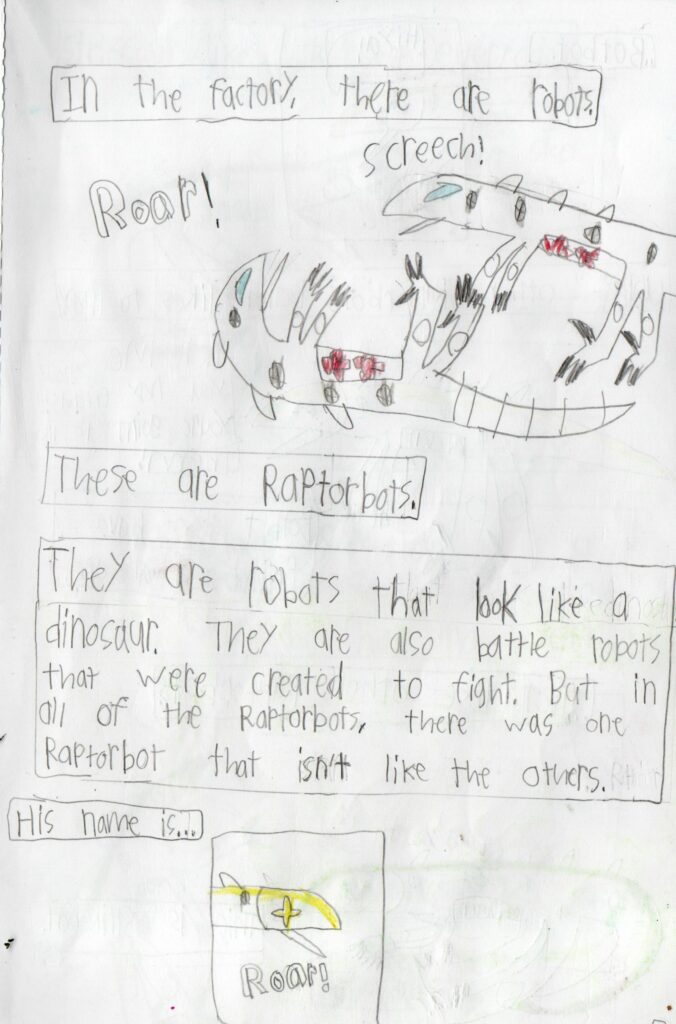 In the factory, there are robots.
screech!
Roar!
These are Raptorbots.
They are robots that look like a
dinosaur. They are also battle robots
that were created to fight. But in
all of the Raptorbots, there was one
Raptorbot that isn't like the others.
His name is...
Roar!